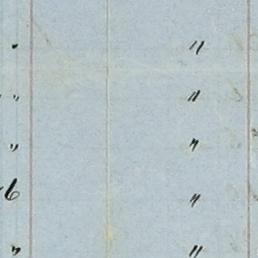 " "
" "
" "
6 "
" "